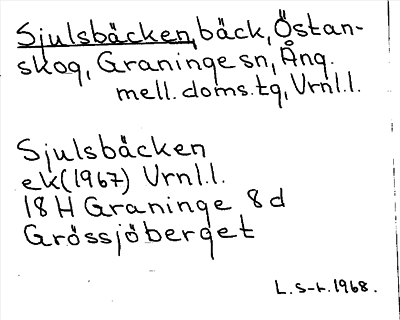 Sjulsbäcken, bäck, Östan-
skog, Graninge sn, Ång.
mell. doms. tg, Vrnl.l.
Sjulsbäcken
ek(1967) Vrnl.l.
18 H Graninge 8 d
Grössjöberget
L. S-t. 1968.